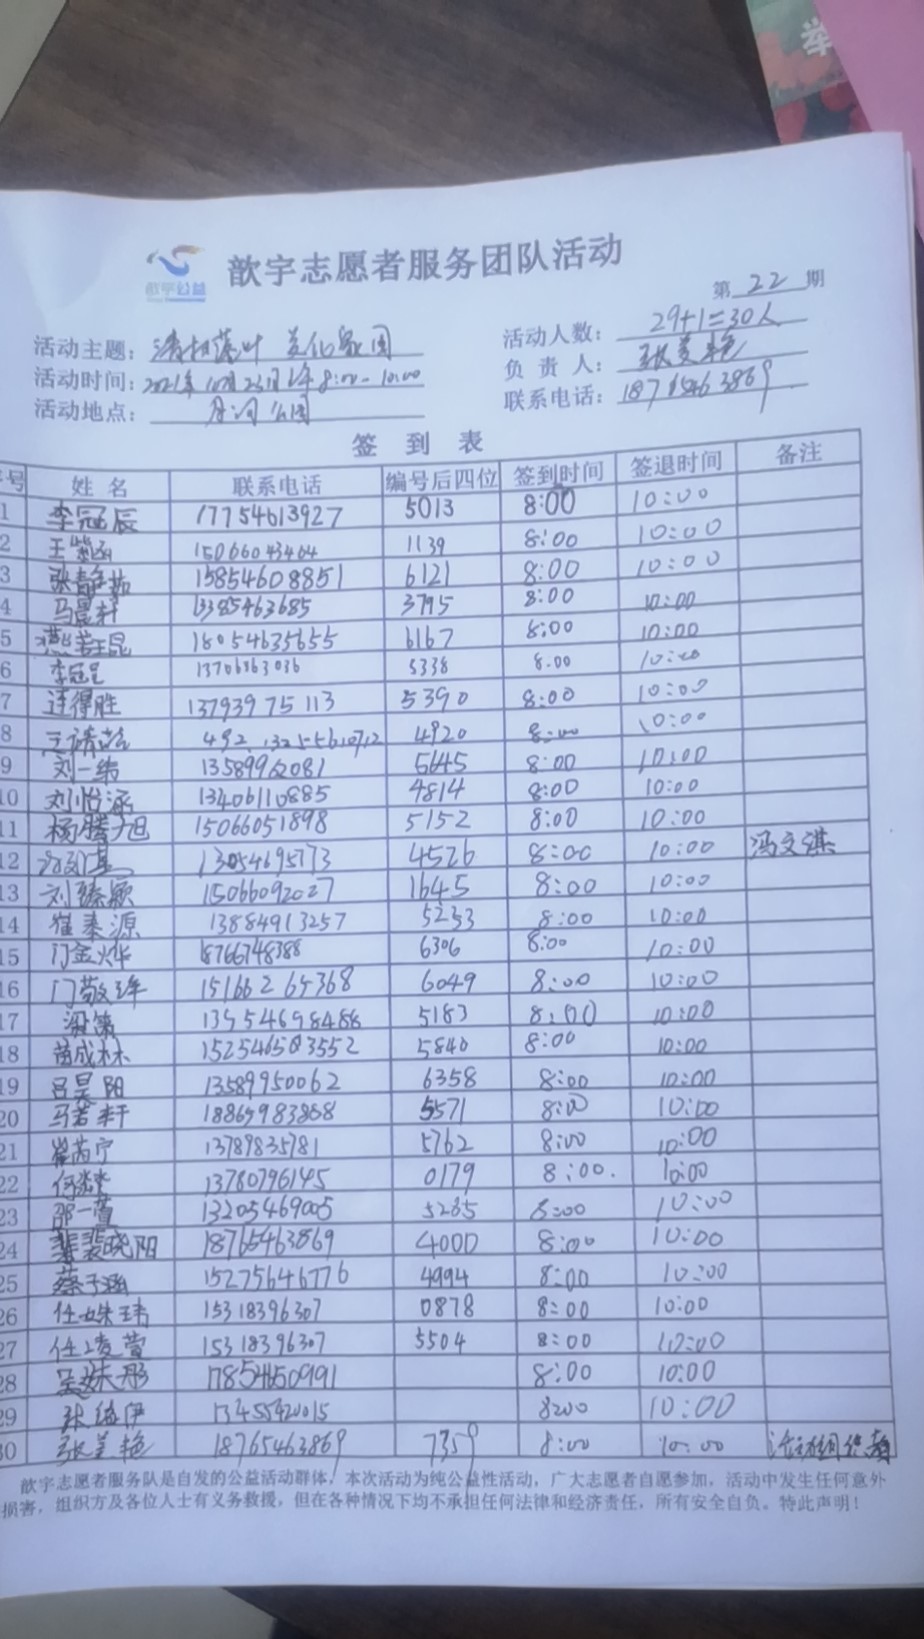 举
歆宇公益
歆宇志愿者服务团队活动
第 22 期
活动主题: 清扫落叶 美化家园
活动人数: 29+1=30人
活动时间: 2021年10月23日上午8:00-10:00
负 责 人: 张美艳
活动地点: 丹河公园
联系电话: 18765463869
签 到 表
序号 姓 名 联系电话 编号后四位 签到时间 签退时间 备注
1 李冠辰 17754613927 5013 8:00 10:00
2 王紫涵 15066043464 1139 8:00 10:00
3 张静茹 15854608851 6121 8:00 10:00
4 马晨轩 13385463685 3795 8:00 10:00
5 18054635655 6167 8:00 10:00
6 李冠呈 13706363036 5338 8.00 10:00
7 连得胜 13793975113 5390 8:00 10:00
8 4920 8:00 10:00
9 刘一纬 13589962081 5645 8:00 10:00
10 刘怡涵 13406110885 4814 8:00 10:00
11 杨腾旭 15066051898 5152 8:00 10:00
12 13054695773 4526 8:00 10:00 冯文淇
13 刘臻颖 15066092027 1645 8:00 10:00
14 崔泰源 13884913257 5233 8:00 10:00
15 门金烨 18766748388 6306 8:00 10:00
16 门敬 15166265368 6049 8:00 10:00
17 13954698488 5183 8:00 10:00
18 苗成林 152546583552 5840 8:00 10:00
19 吕昊阳 13589950062 6358 8:00 10:00
20 马若轩 18865983868 5571 8:00 10:00
21 崔芮宁 13789835781 5762 8:00 10:00
22 何 13780796145 0179 8:00. 10:00
23 邵一萱 13205469005 5285 8:00 10:00
24 裴晓阳 18765463869 4000 8:00 10:00
25 蔡子涵 15275646776 4994 8:00 10:00
26 任姝玮 15318396307 0878 8:00 10:00
27 任凌萱 15318396307 5504 8:00 10:00
28 吴姝彤 17854650991 8:00 10:00
29 张绪伊 13455420015 8:00 10:00
30 张美艳 18765463869 7359 8:00 10:00 活动组织者
歆宇志愿者服务队是自发的公益活动群体，本次活动为纯公益性活动，广大志愿者自愿参加，活动中发生任何意外
损害，组织方及各位人士有义务救援，但在各种情况下均不承担任何法律和经济责任，所有安全自负。特此声明！